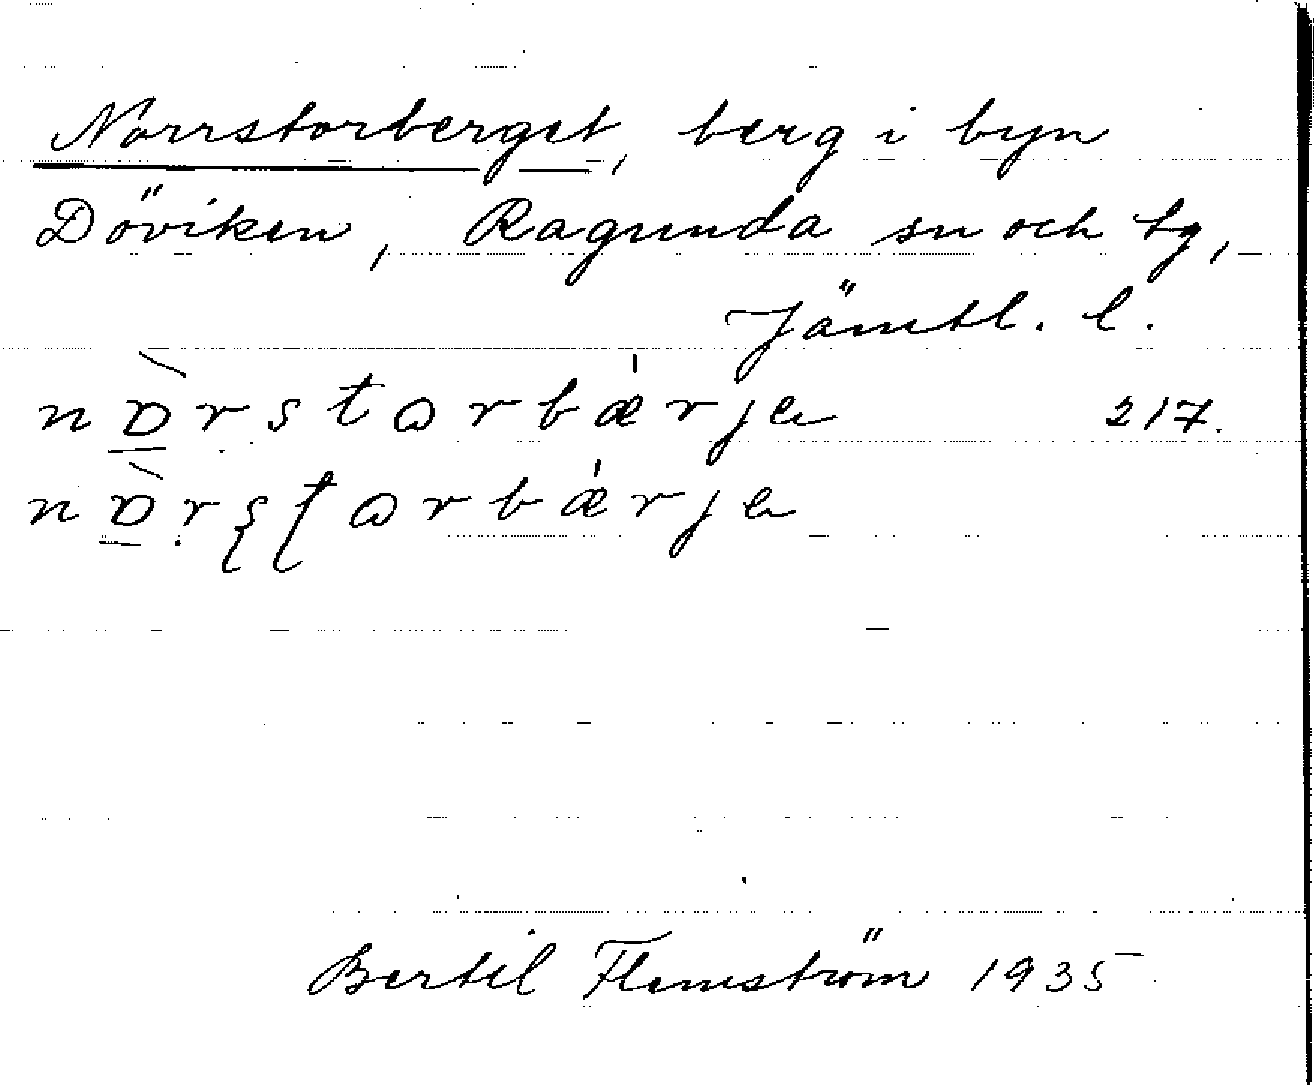 Norrstorberget, berg i byn
Döviken, Ragunda sn och tg,
Jämtl. l.
nɒ̱̀rstɷrbæ̍rjɐ 217.
nɒ̱̀rʂʈɷrbæ̍rjɐ
Bertil Flemström 1935